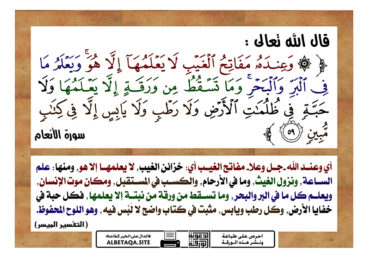 قال الله تعالى :
۞ وَعِندَهُۥ مَفَاتِحُ ٱلْغَيْبِ لَا يَعْلَمُهَآ إِلَّا هُوَ ۚ وَيَعْلَمُ مَا
فِى ٱلْبَرِّ وَٱلْبَحْرِ ۚ وَمَا تَسْقُطُ مِن وَرَقَةٍ إِلَّا يَعْلَمُهَا وَلَا
حَبَّةٍ فِى ظُلُمَٰتِ ٱلْأَرْضِ وَلَا رَطْبٍ وَلَا يَابِسٍ إِلَّا فِى كِتَٰبٍ
مُّبِينٍ ٥٩ سورة الأنعام
أي وعند الله ـ جل وعلا ـ مفاتح الغيب أي: خزائن الغيب، لا يعلمها إلا هو، ومنها: علم
الساعة، ونزول الغيث، وما في الأرحام، والكسب في المستقبل، ومكان موت الإنسان،
ويعلم كل ما في البر والبحر، وما تسقط من ورقة من نبتة إلا يعلمها، فكل حبة في
خفايا الأرض، وكل رطب ويابس، مثبت في كتاب واضح لا لبس فيه، وهو اللوح المحفوظ.
( التفسير الميسر)
احرص على طباعة
ونشر هذه الورقة
ALBETAQA.SITE